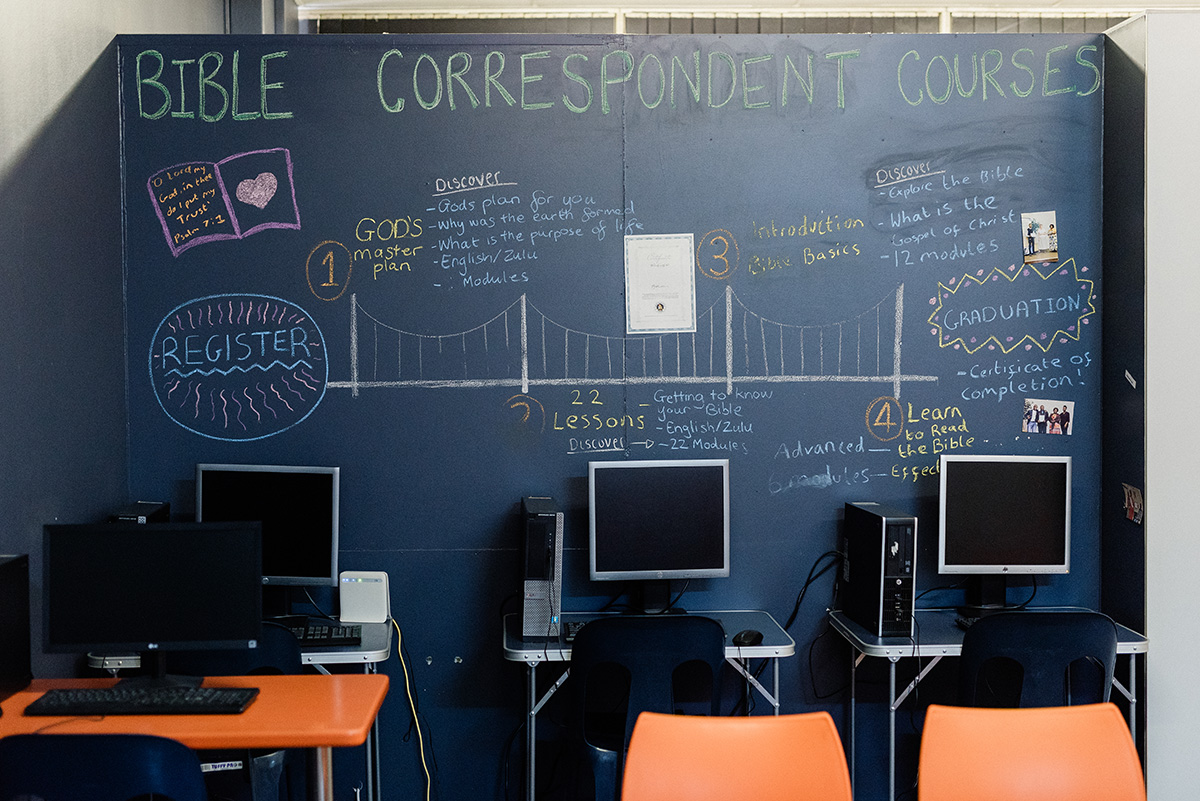 BIBLE CORRESPONDENT COURSES
O Lord my
God, in thee
do I put my
Trust'
Psalm 7:1
REGISTER
1
GOD'S
master
plan
Discover
- Gods plan for you
- Why was the earth formed
- What is the purpose of life
- English/Zulu
- Modules
2
22
Lessons
Discover
- Getting to know
your Bible
- English/Zulu
- 22 Modules
3
Introduction
Bible Basics
Discover
- Explore the Bible
- What is the
Gospel of Christ
- 12 modules
4
Learn
to Read
the Bible
Advanced
modules
GRADUATION
- Certificate of
completion!